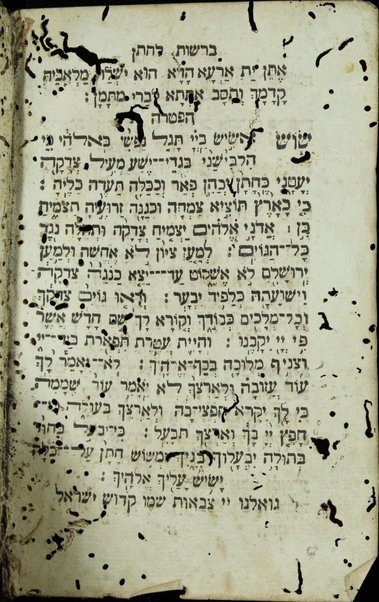 ברשות להתן
אתין ית ארעא הדא הוא ישלח מלאכיה
קדמך ותסב אתתא לברי מתמן:
הפטרה
שוש אשיש ביי תגל נפשי באלהי כי
הלבישני בגדי ישע מעיל צדקה
יעטני כחתן יכהן פאר וככלה תעדה כליה:
כי כארץ תוציא צמחה וכגנה זרועיה תצמיח
כן אדני אלהים יצמיח צדקה ותהלה נגד
כל הגוים: למען ציון לא אחשה ולמען
ירושלם לא אשקוט עד יצא כנגה צדקה
וישועתה כלפיד יבער: וראו גוים צדקך
וכל מלכים כבודך וקורא לך שם חדש אשר
פי יי יקבנו: והיית עטרת תפארת ביד יי
וצניף מלוכה בכף אלהיך: לא יאמר לך
עוד עזובה ולארצך לא יאמר עוד שממה
כי לך יקרא חפצי בה ולארצך בעולה כי
חפץ יי בך וארצך תבעל: כי יבעל בחור
בתולה יבעלוך בניך ומשוש חתן על כלה
ישיש עליך אלהיך:
גואלנו יי צבאות שמו קדוש ישראל